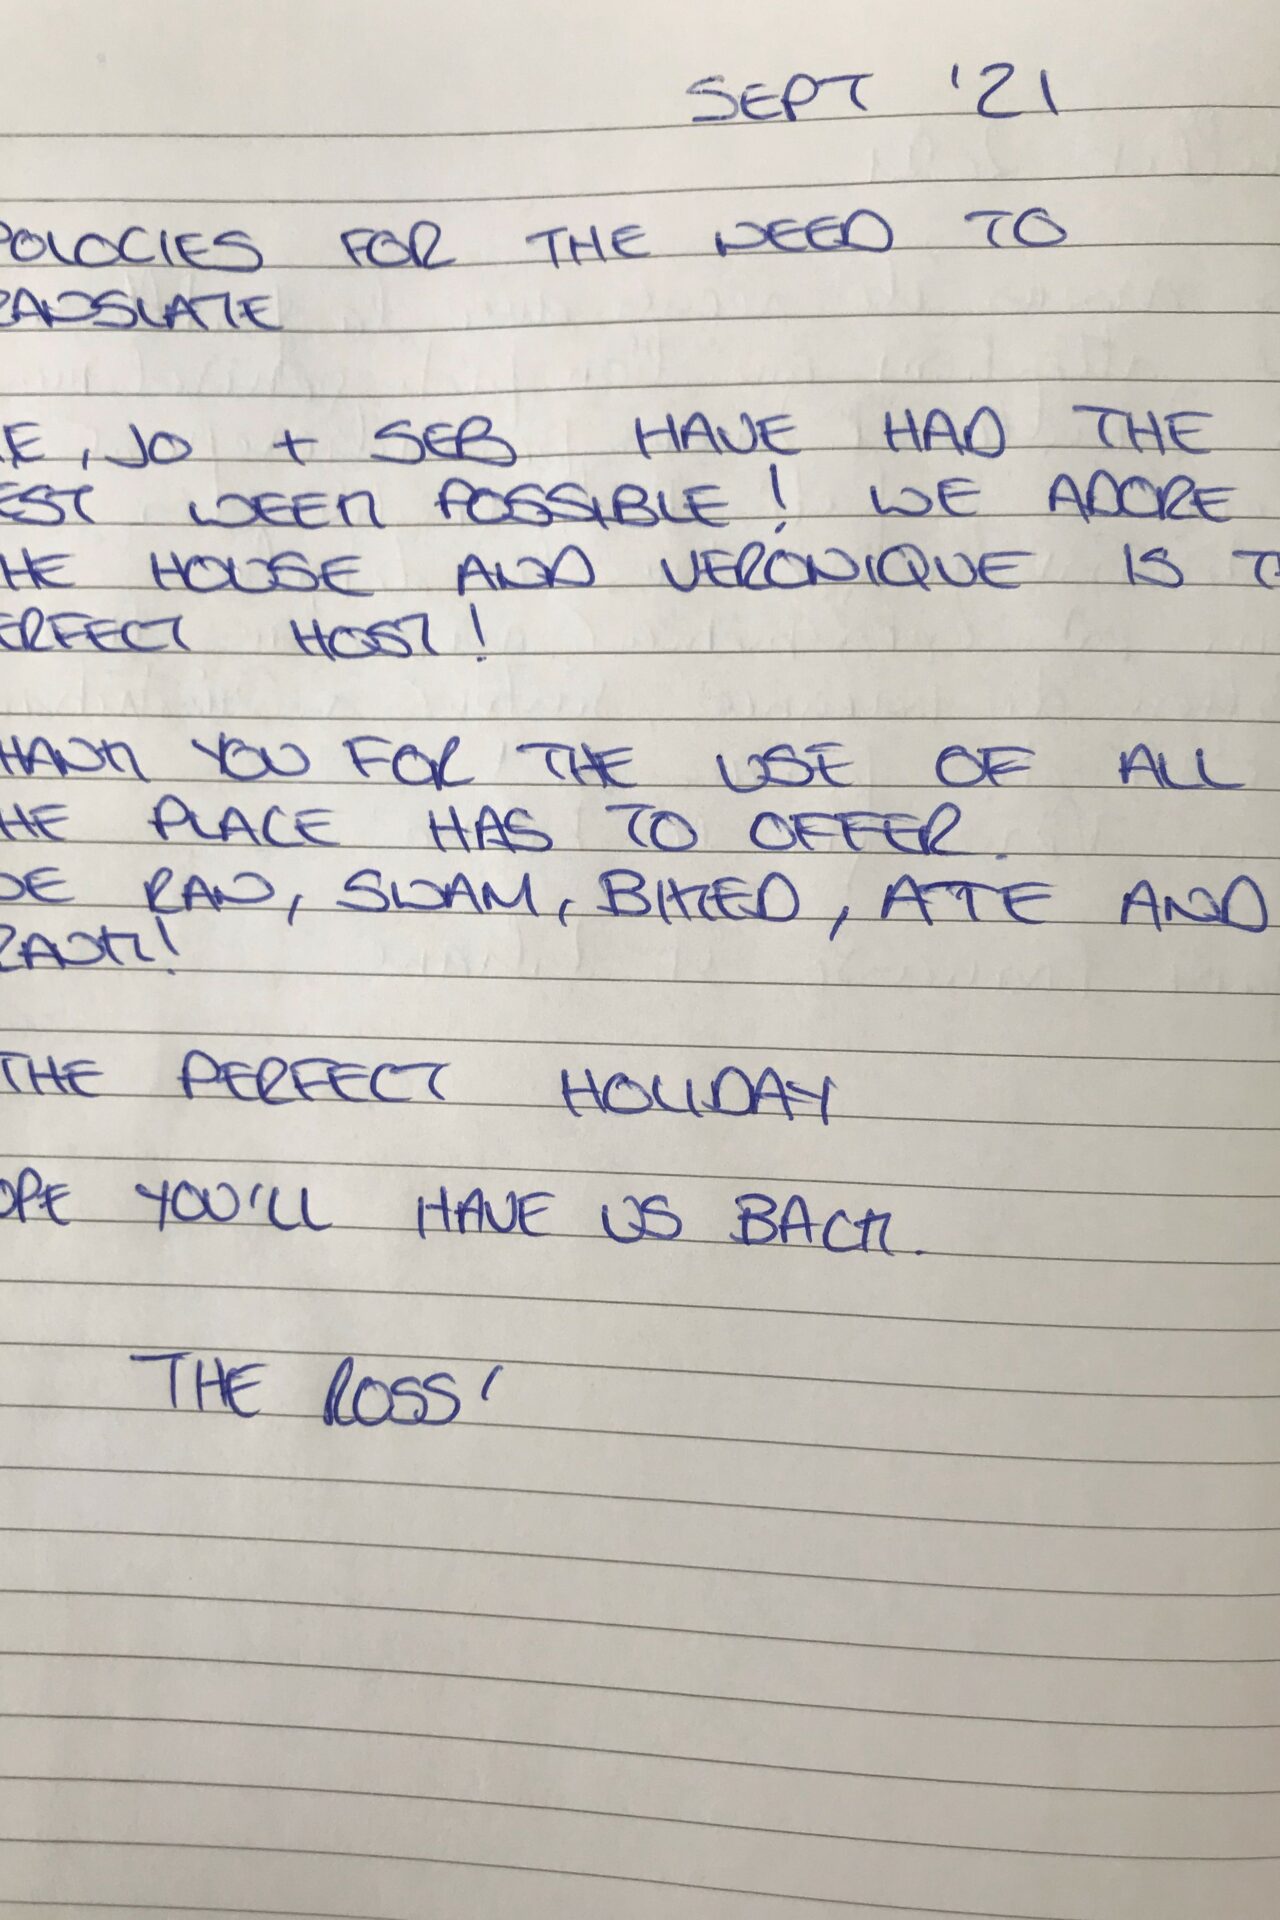 SEPT '21
POLOGIES FOR THE NEED TO
RANSLATE
E, JO + SEB HAVE HAD THE
EST WEEK POSSIBLE! WE ADORE
HE HOUSE AND VERONIQUE IS T
ERFECT HOST!
HANK YOU FOR THE USE OF ALL
HE PLACE HAS TO OFFER.
WE RAN, SWAM, BIKED, ATE AND
RANK!
THE PERFECT HOLIDAY
OPE YOU'LL HAVE US BACK.
THE ROSS'